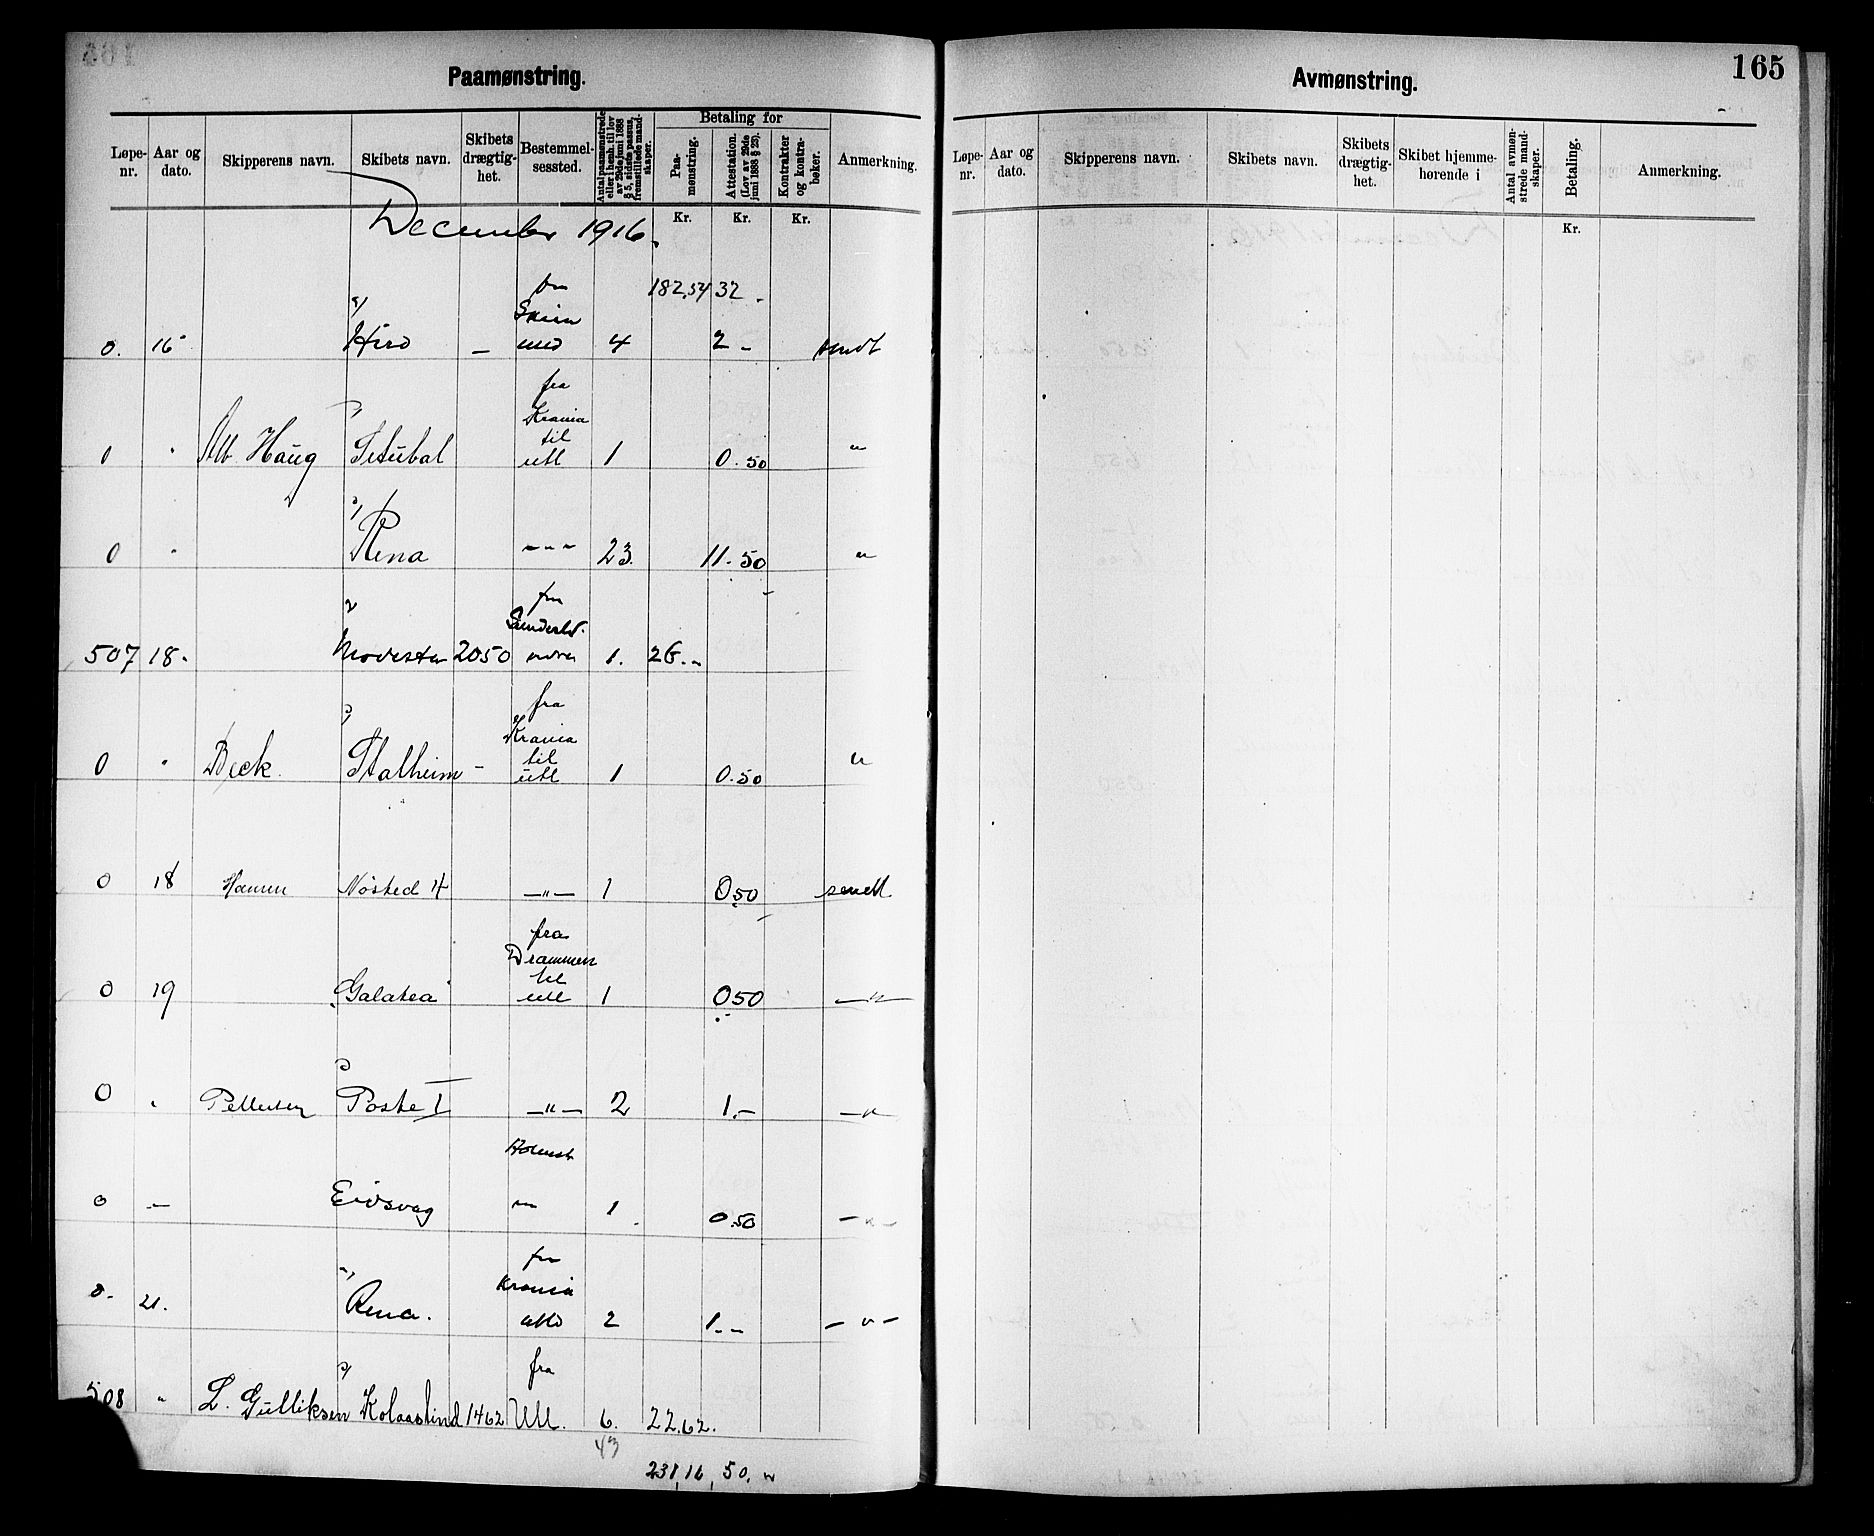 Paamønstring.
Løpe-nr. Aar og dato. Skipperens navn. Skibets navn. Skibets drægtig-het. Bestemmel-sessted. Antal paamønstrede eller i henh. til lov av 29de juni 1888 § 5, sidste passus, fremstillede mand-skaper. Betaling for Paa-mønstring. Attestation. (Lov av 29de juni 1888 § 25). Kontrakter og kontra-bøker. Anmerkning.
Kr. Kr. Kr.
December 1916.
182,54 32 -
fra
Skien
0. 16 Hird - 4 2 - sendt
fra
Krania
til
0 " Alb Haug Setubal utl 1 0.50 "
0 " Rena - " - 23 11.50 "
fra
Sunderld.
507 18. Modesta 2050 1. 26.-
fra
Krania
til
0 " Beck Stalheim - utl 1 0.50 "
0 18 Hansen Nøsted 4 - " - 1 0.50 sendt
fra
Drammen
til
0 19 "Galatea" utl 1 0.50 - " -
0 " Pettersen Poste I - " - 2 1.- - " -
Holmest
0 - Eidsvag 1 0.50 - " -
fra
Krania
0. 21. Rena. 2 1.- - " -
fra
508 " L. Gulliksen Kolaastind 1462 Utl. 6. 22.62.
43
231,16 50.
165
Avmønstring.
Løpe-nr. Aar og dato. Skipperens navn. Skibets navn. Skibets drægtig-het. Skibet hjemme-hørende i Antal avmøn-strede mand-skaper. Betaling. Anmerkning.
Kr.